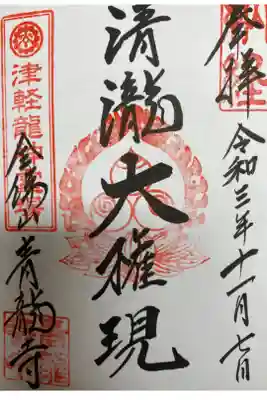 奉拝 令和三年十一月七日
清瀧大権現
津軽龍神霊場
全佛山 青龍寺